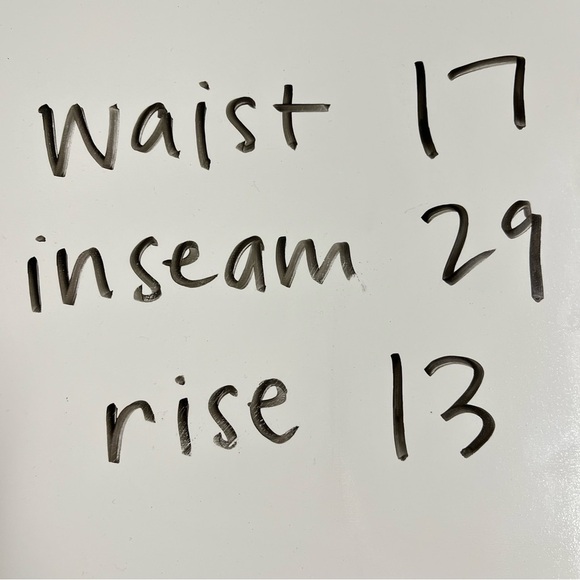 waist 17
inseam 29
rise 13